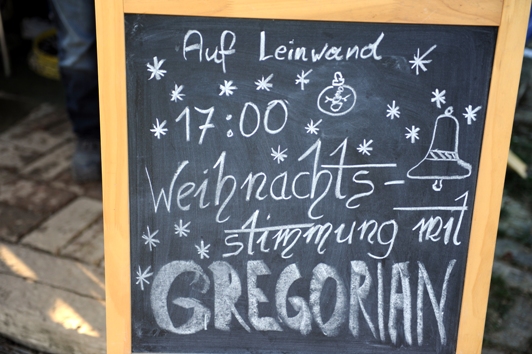 Auf Leinwand
17:00
Weihnachts-
stimmung mit
GREGORIAN